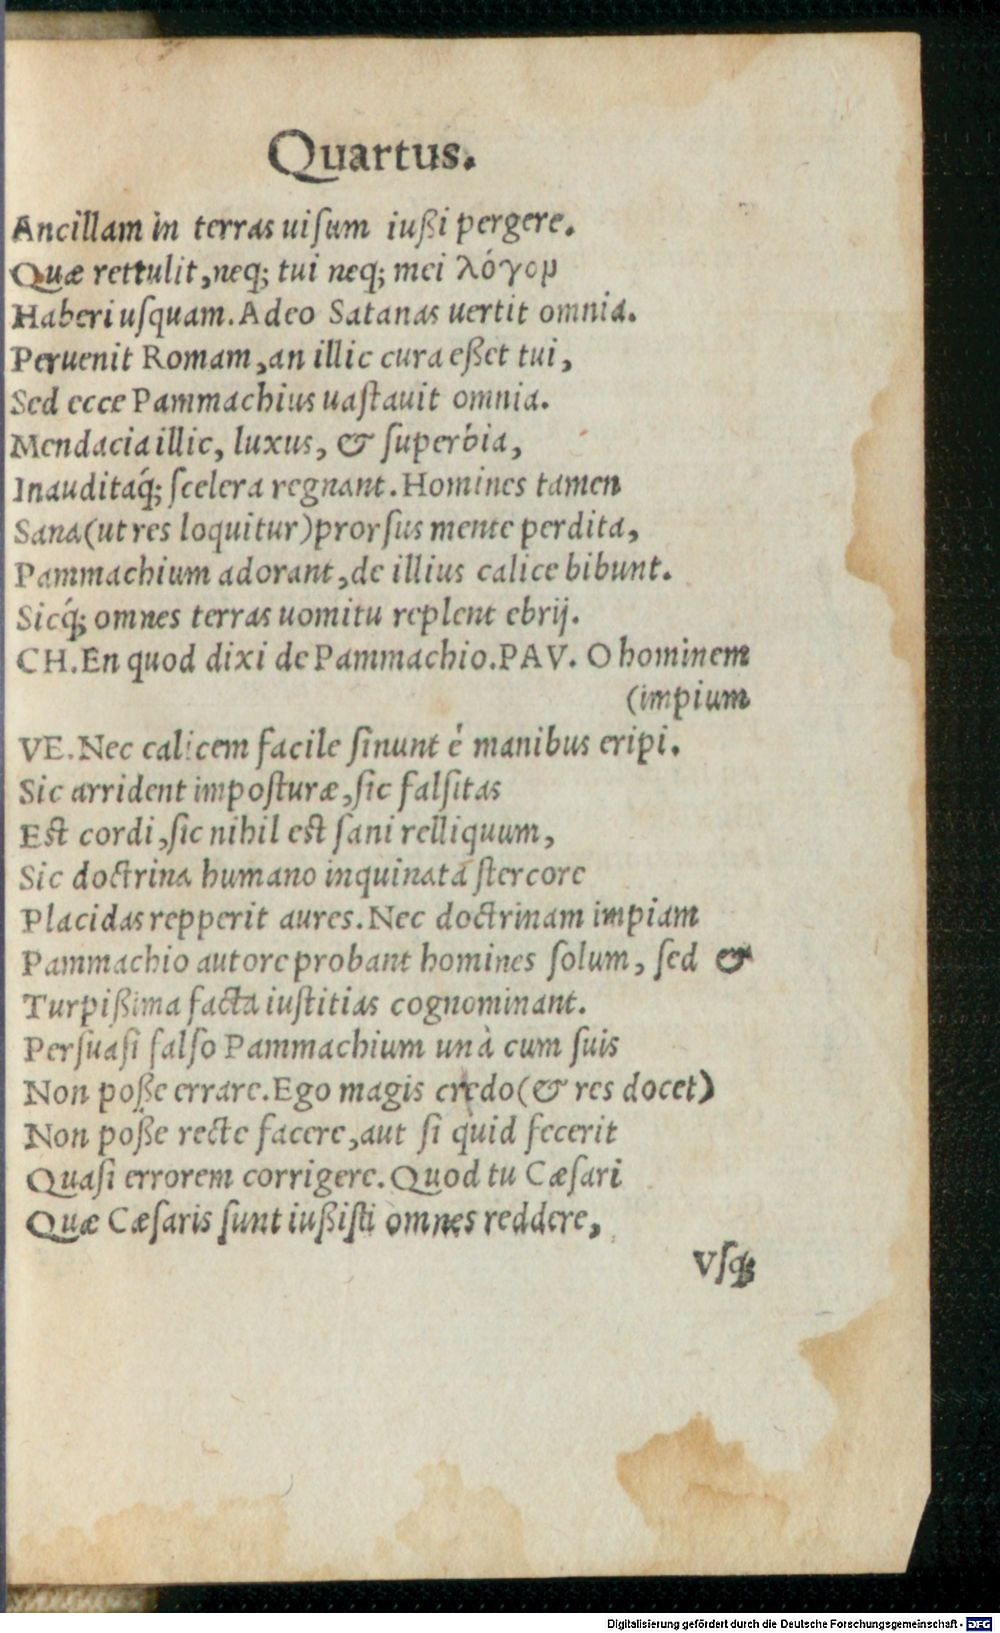 Quartus.
Ancillam in terras uiſum iußi pergere.
Quæ rettulit, neq; tui neq; mei λόγομ
Haberi uſquam. Adeo Satanas uertit omnia.
Peruenit Romam, an illic cura eßet tui,
Sed ecce Pammachius uaſtauit omnia.
Mendacia illic, luxus, & ſuperbia,
Inauditaq́; ſcelera regnant. Homines tamen
Sana (ut res loquitur) prorſus mente perdita,
Pammachium adorant, de illius calice bibunt.
Sicq́; omnes terras uomitu replent ebrij.
CH. En quod dixi de Pammachio. PAV. O hominem
(impium
VE. Nec calicem facile ſinunt é manibus eripi.
Sic arrident impoſturæ, ſic falſitas
Eſt cordi, ſic nihil eſt ſani relliquum,
Sic doctrina humano inquinata ſtercore
Placidas repperit aures. Nec doctrinam impiam
Pammachio autore probant homines ſolum, ſed &
Turpißima facta iuſtitias cognominant.
Perſuaſi falſo Pammachium unà cum ſuis
Non poße errare. Ego magis credo (& res docet)
Non poße recte facere, aut ſi quid fecerit
Quaſi errorem corrigere. Quod tu Cæſari
Quæ Cæſaris ſunt iußiſti omnes reddere,
Vſq;
Digitalisierung gefördert durch die Deutsche Forschungsgemeinschaft - DFG